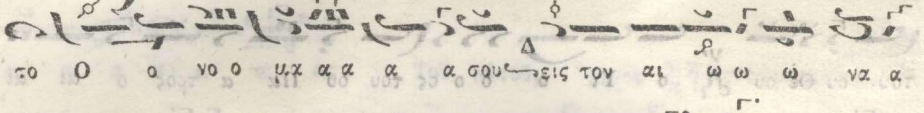 το Ο ο νο ο μα α α α α σου εις τον αι ω ω ω να α